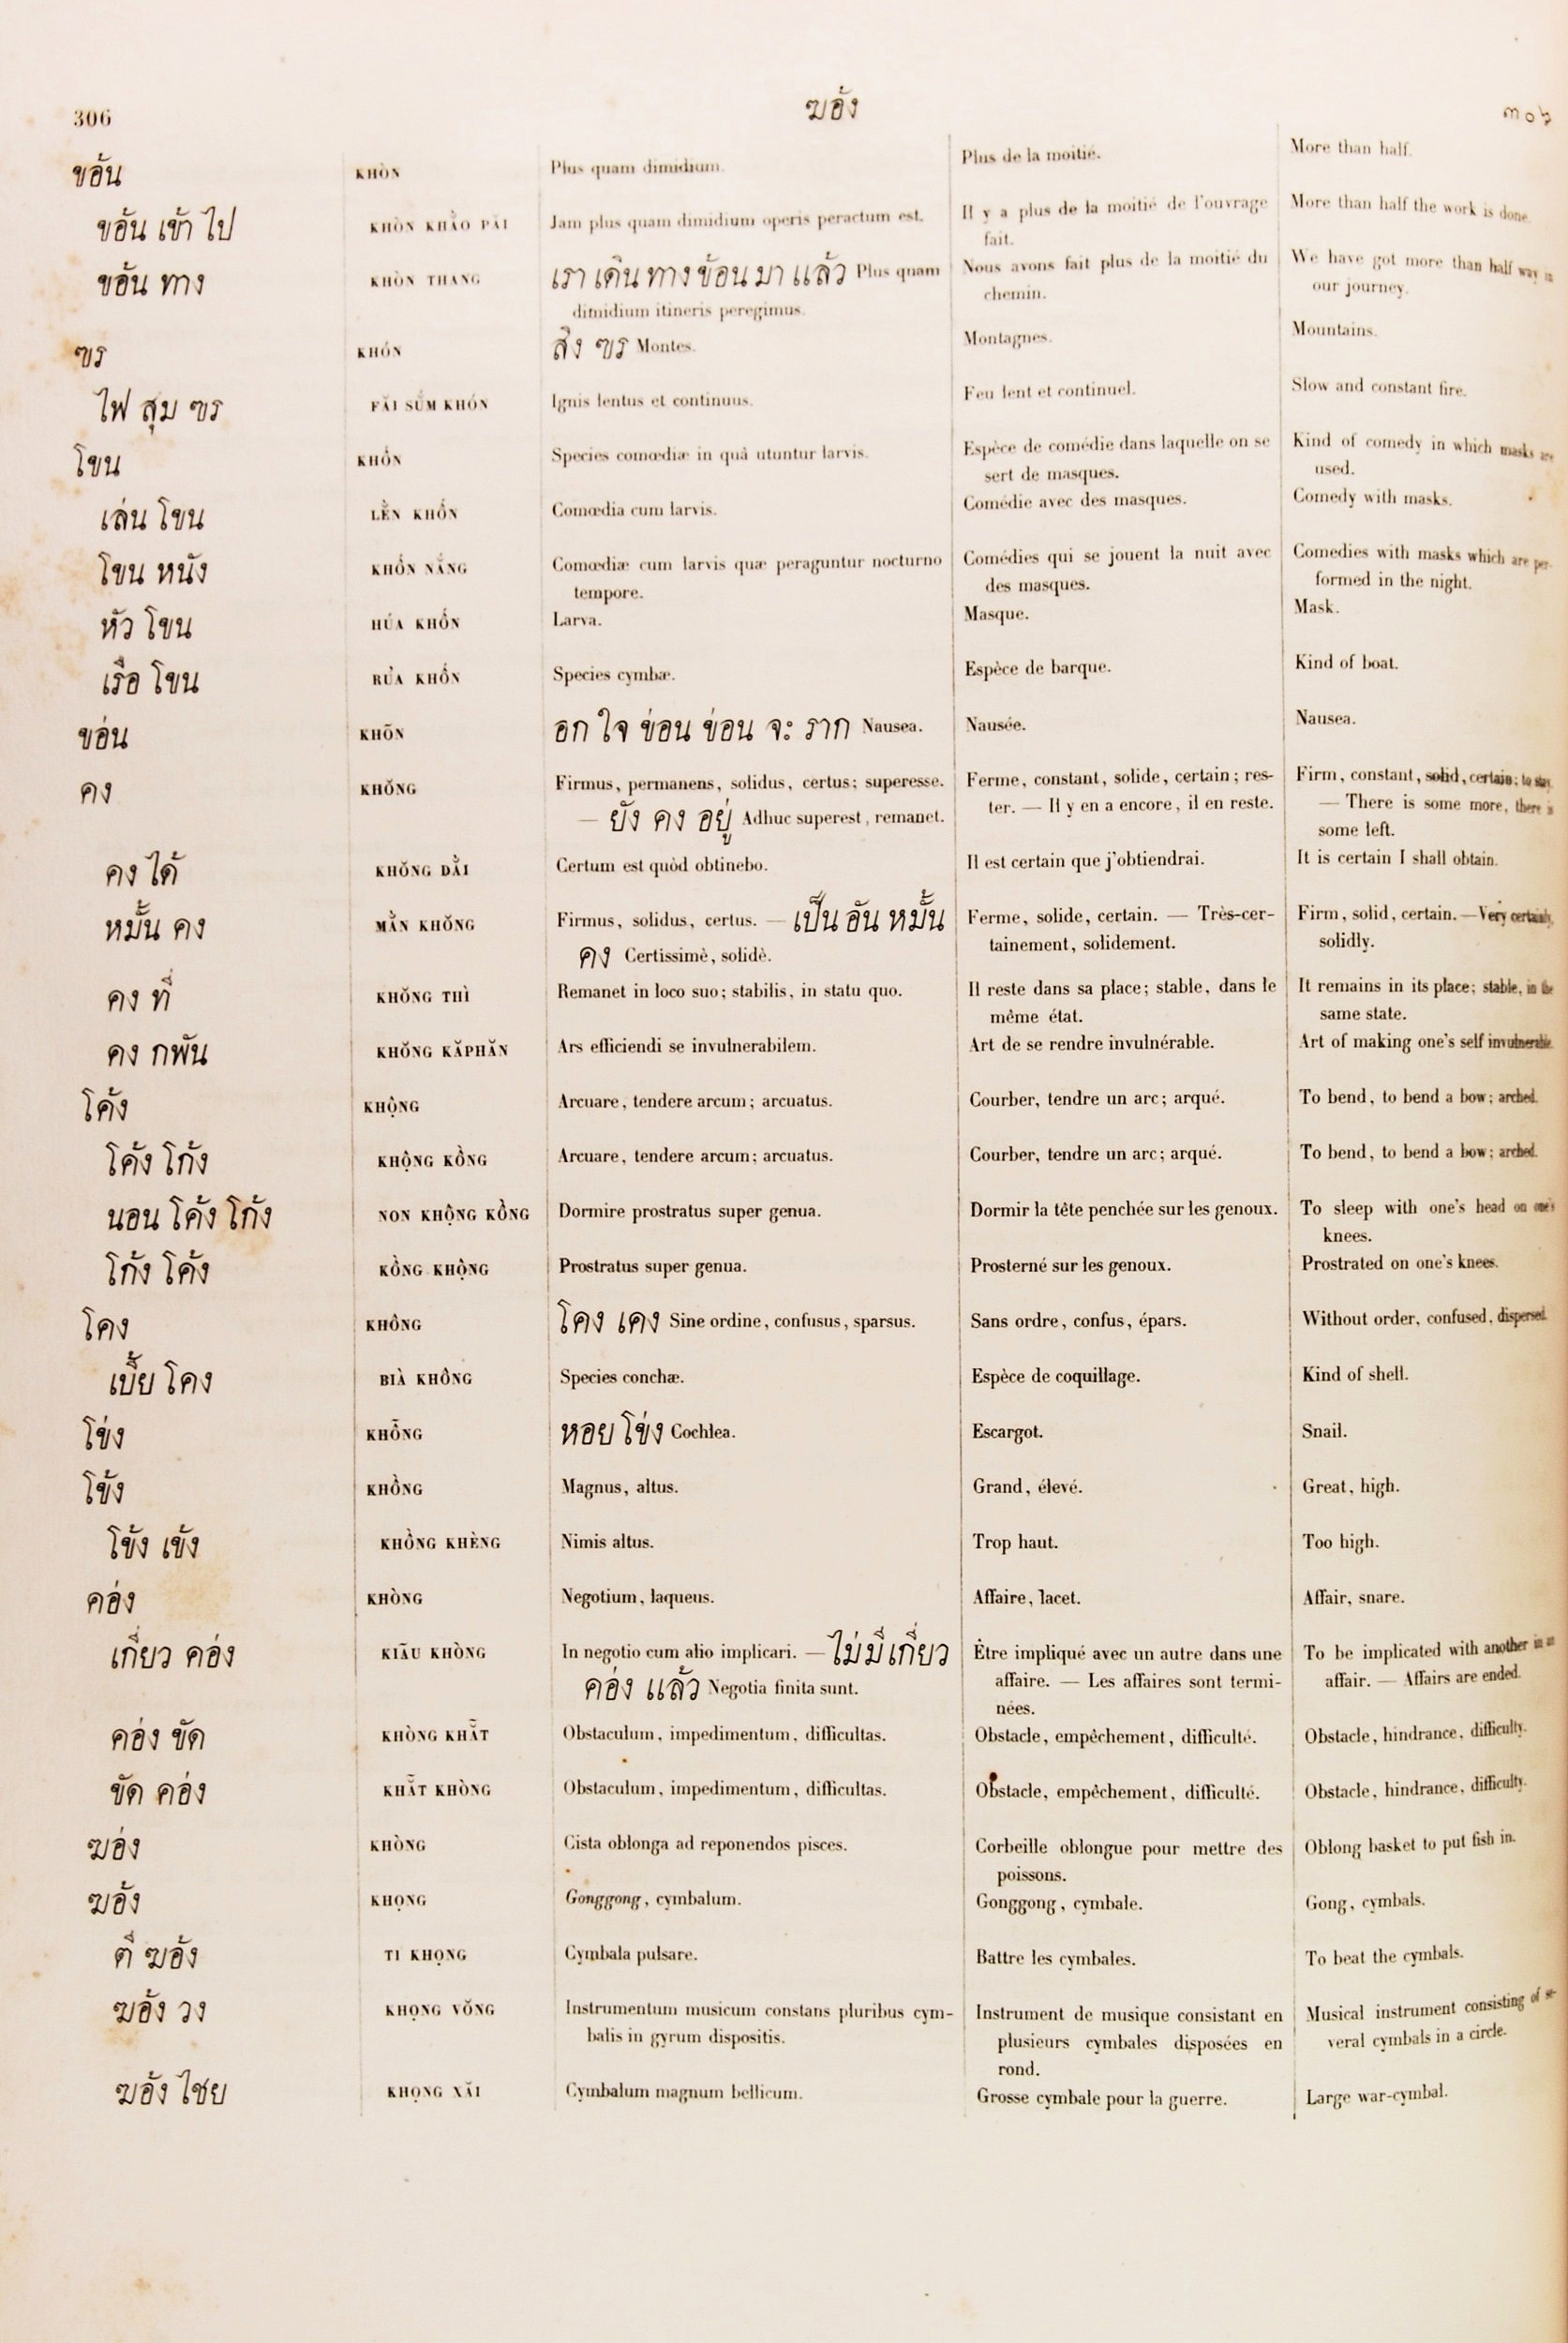 306 ฆอ้ง ๓๐๖
ขอ้น KHÒN Plus quam dimidium. Plus de la moitié. More than half.
ขอ้น เข้า ไป KHÒN KHẢO PĂI Jam plus quam dimidium operis peractum est. Il y a plus de la moitié de l'ouvrage More than half the work is done.
fait.
ขอ้น ทาง KHÒN THANG เรา เดิน ทาง ข้อน มา แล้ว Plus quam Nous avons fait plus de la moitié du We have got more than half way in
dimidium itineris peregimus. chemin. our journey.
ฃร KHÓN สิง ฃร Montes. Montagnes. Mountains.
ไฟ สุม ฃร FĂI SŬM KHÓN Ignis lentus et continuus. Feu lent et continuel. Slow and constant fire.
โขน KHỐN Species comœdiæ in quâ utuntur larvis. Espèce de comédie dans laquelle on se Kind of comedy in which masks are
sert de masques. used.
เล่น โขน LẺN KHỐN Comœdia cum larvis. Comédie avec des masques. Comedy with masks.
โขน หนัง KHỐN NẮNG Comœdiæ cum larvis quæ peraguntur nocturno Comédies qui se jouent la nuit avec Comedies with masks which are per-
tempore. des masques. formed in the night.
หัว โขน HÚA KHỐN Larva. Masque. Mask.
เรือ โขน RỦA KHỐN Species cymbæ. Espèce de barque. Kind of boat.
ขอ่น KHÕN อก ใจ ข่อน ข่อน จะ ราก Nausea. Nausée. Nausea.
คง KHŎNG Firmus, permanens, solidus, certus; superesse. Ferme, constant, solide, certain; res- Firm, constant, solid, certain; to stay
— ยัง คง อยู่ Adhuc superest, remanet. ter. — Il y en a encore, il en reste. — There is some more, there is
some left.
คง ได้ KHŎNG DẢI Certum est quòd obtinebo. Il est certain que j'obtiendrai. It is certain I shall obtain.
หมั้น คง MẲN KHŎNG Firmus, solidus, certus. — เป็น อัน หมั้น Ferme, solide, certain. — Très-cer- Firm, solid, certain. — Very certainly,
คง Certissimè, solidè. tainement, solidement. solidly.
คง ที่ KHŎNG THÌ Remanet in loco suo; stabilis, in statu quo. Il reste dans sa place; stable, dans le It remains in its place; stable, in the
même état. same state.
คง กพัน KHŎNG KĂPHĂN Ars efficiendi se invulnerabilem. Art de se rendre invulnérable. Art of making one's self invulnerable.
โค้ง KHỘNG Arcuare, tendere arcum; arcuatus. Courber, tendre un arc; arqué. To bend, to bend a bow; arched.
โค้ง โก้ง KHỘNG KỒNG Arcuare, tendere arcum; arcuatus. Courber, tendre un arc; arqué. To bend, to bend a bow; arched.
นอน โค้ง โก้ง NON KHỘNG KỒNG Dormire prostratus super genua. Dormir la tête penchée sur les genoux. To sleep with one's head on one's
knees.
โก้ง โค้ง KỒNG KHỘNG Prostratus super genua. Prosterné sur les genoux. Prostrated on one's knees.
โคง KHÔNG โคง เคง Sine ordine, confusus, sparsus. Sans ordre, confus, épars. Without order, confused, dispersed.
เบี้ย โคง BIÀ KHÔNG Species conchæ. Espèce de coquillage. Kind of shell.
โข่ง KHỖNG หอย โข่ง Cochlea. Escargot. Snail.
โข้ง KHỒNG Magnus, altus. Grand, élevé. Great, high.
โข้ง เข้ง KHỒNG KHÈNG Nimis altus. Trop haut. Too high.
คอ่ง KHÒNG Negotium, laqueus. Affaire, lacet. Affair, snare.
เกี่ยว คอ่ง KIÃU KHÒNG In negotio cum alio implicari. — ไม่ มี เกี่ยว Être impliqué avec un autre dans une To be implicated with another in an
คอ่ง แล้ว Negotia finita sunt. affaire. — Les affaires sont termi- affair. — Affairs are ended.
nées.
คอ่ง ขัด KHÒNG KHẴT Obstaculum, impedimentum, difficultas. Obstacle, empêchement, difficulté. Obstacle, hindrance, difficulty.
ขัด คอ่ง KHẴT KHÒNG Obstaculum, impedimentum, difficultas. Obstacle, empêchement, difficulté. Obstacle, hindrance, difficulty.
ฆอ่ง KHÒNG Cista oblonga ad reponendos pisces. Corbeille oblongue pour mettre des Oblong basket to put fish in.
poissons.
ฆอ้ง KHỌNG Gonggong, cymbalum. Gonggong, cymbale. Gong, cymbals.
ตี ฆอ้ง TI KHỌNG Cymbala pulsare. Battre les cymbales. To beat the cymbals.
ฆอ้ง วง KHỌNG VŎNG Instrumentum musicum constans pluribus cym- Instrument de musique consistant en Musical instrument consisting of se-
balis in gyrum dispositis. plusieurs cymbales disposées en veral cymbals in a circle.
rond.
ฆอ้ง ไชย KHỌNG XĂI Cymbalum magnum bellicum. Grosse cymbale pour la guerre. Large war-cymbal.